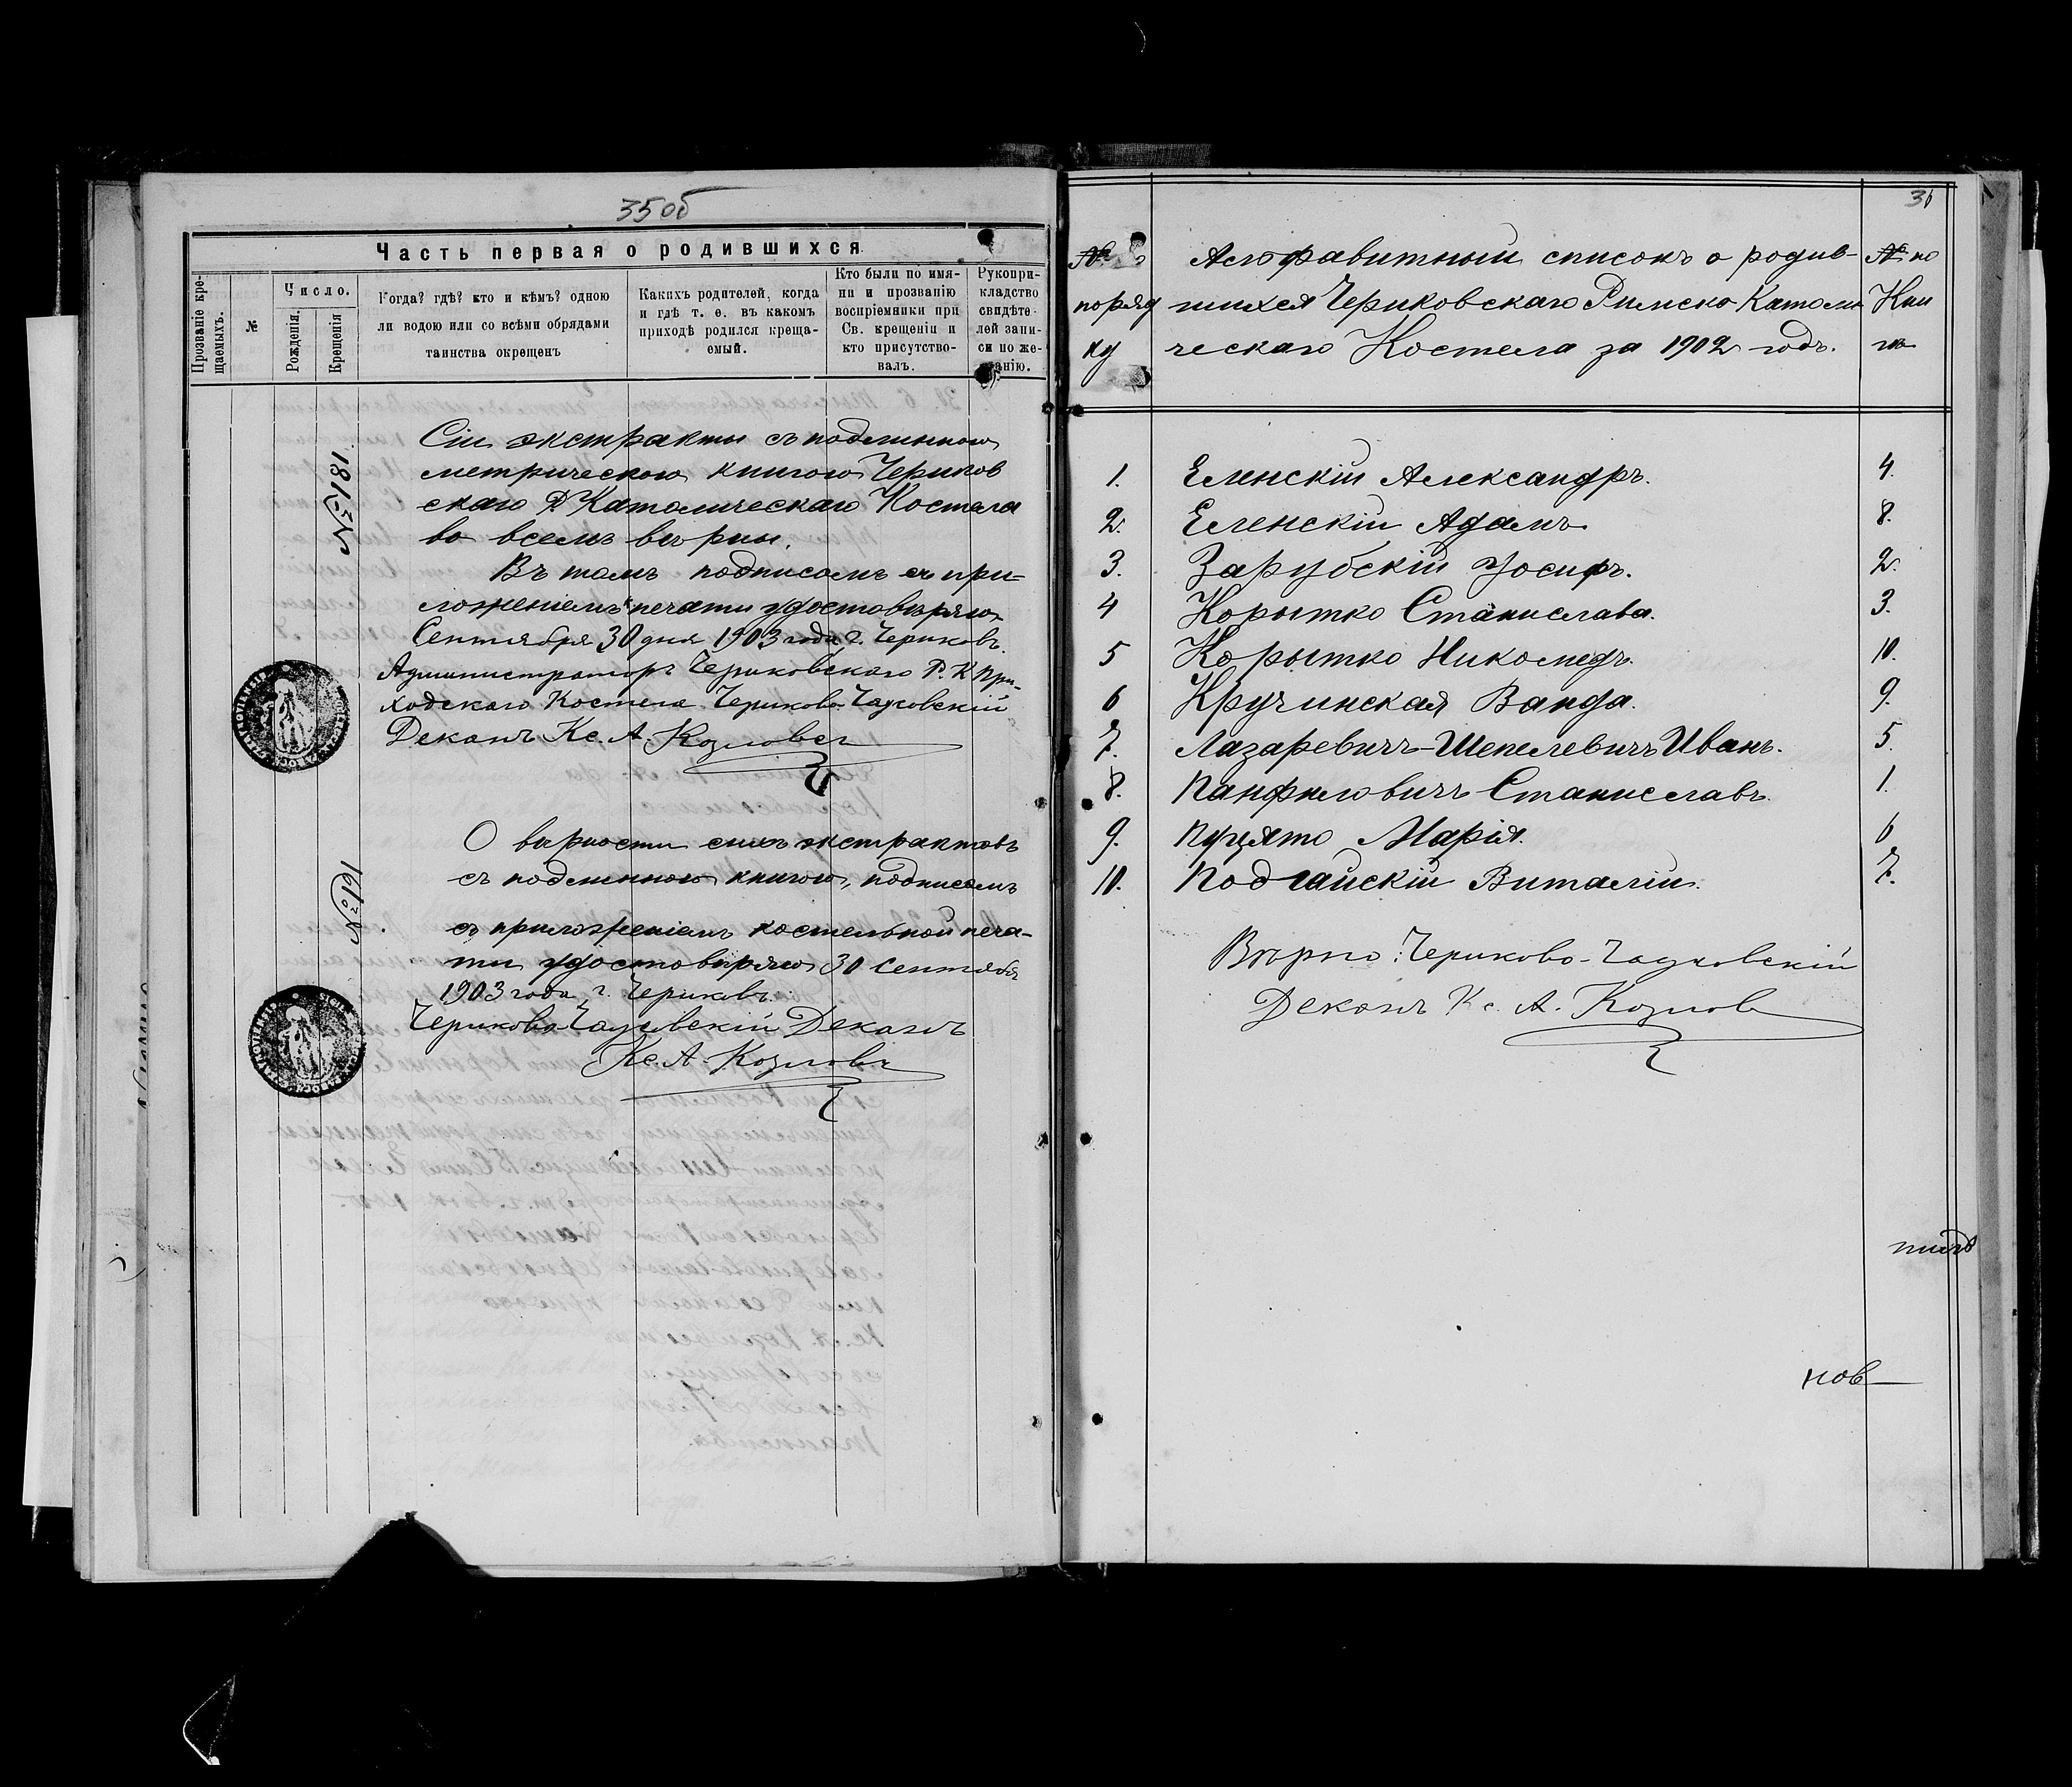 35об
Часть первая о родившихся
Прозваніе кре-
щаемыхъ.
№
Число.
Рожденія.
Крещенія
Когда? гдѣ? кто и кѣмъ? одною
ли водою или со всѣми обрядами
таинства окрещенъ
Какихъ родителей, когда
и гдѣ т. е. въ какомъ
приходѣ родился креща-
емый.
Кто были по имя-
ни и прозванію
воспріемники при
Св. крещеніи и
кто присутство-
валъ.
Рукопри-
кладство
свидѣте-
лей запи-
си по же-
ланію.
№ 181.
Сіи экстракты съ подлинною
метрическою книгою Чериков
скаго Р Католическаго Костела
во всемъ вѣрны.
Въ томъ подписомъ съ при-
ложеніемъ печати удостовѣряю
Сентября 30 дня 1903 года г. Чериковъ.
Администраторъ Чериковскаго Р. К При-
ходскаго Костела Чериково-Чаусовскій
Деканъ Кс. А. Козловск
№ 191
О вѣрности сихъ экстрактовъ
съ подлинною книгою, подписомъ
съ приложеніемъ костельной печа-
ти удостовѣряю 30 Сентября
1903 года г. Чериковъ.
Чериково-Чаусовскій Деканъ
Кс. А. Козловъ
36
№ по Алфавитный списокъ о родив- № по
поряд шихся Чериковскаго Римско Католи Кни
ку ческаго Костела за 1902 годъ. гѣ
1. Еленскій Александръ. 4.
2. Еленскій Адамъ. 8.
3. Зарубскій Іосифъ. 2.
4 Корытко Станислава. 3.
5 Корытко Никомедъ. 10.
6 Кручинская Ванда. 9.
7. Лазаревичъ-Шепелевичъ Иванъ. 5.
8. Панфиловичъ Станиславъ. 1.
9. Пуцято Марія. 6
10. Подгайскій Виталій. 7.
Вѣрно: Чериково-Чаусовскій
Деканъ Кс. А. Козлов
нов